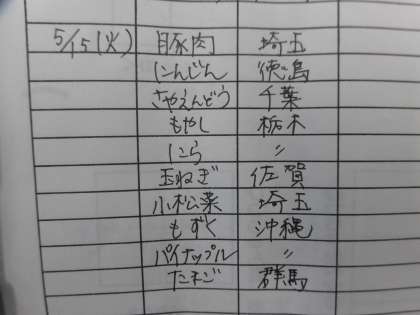 5/15(火) 豚肉 埼玉
にんじん 徳島
さやえんどう 千葉
もやし 栃木
にら 〃
玉ねぎ 佐賀
小松菜 埼玉
もずく 沖縄
パイナップル 〃
たまご 群馬